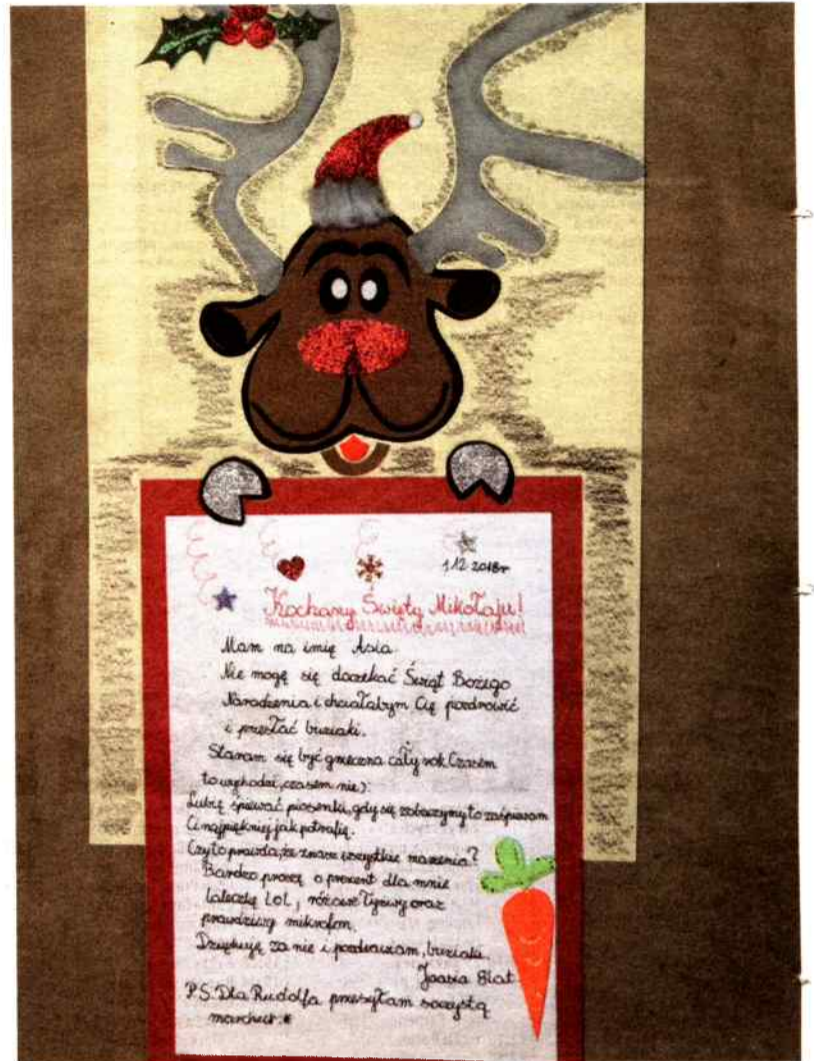 1.12 2018r
Kochany Święty Mikołaju!
Mam na imię Asia.
Nie mogę się doczekać Świąt Bożego
Narodzenia i chciałabym Cię pozdrowić
i przesłać buziaki.
Staram się być grzeczna cały rok. Czasem
to wychodzi, czasem nie ):
Lubię śpiewać piosenki, gdy się zobaczymy to zaśpiewam
Ci najpiękniej jak potrafię.
Czy to prawda, że znasz wszystkie marzenia?
Bardzo proszę o prezent dla mnie
laleczkę LOL, różowe łyżwy oraz
prawdziwy mikrofon.
Dziękuję za nie i pozdrawiam, buziaki.
Joasia 8lat
P.S. Dla Rudolfa przesyłam soczystą